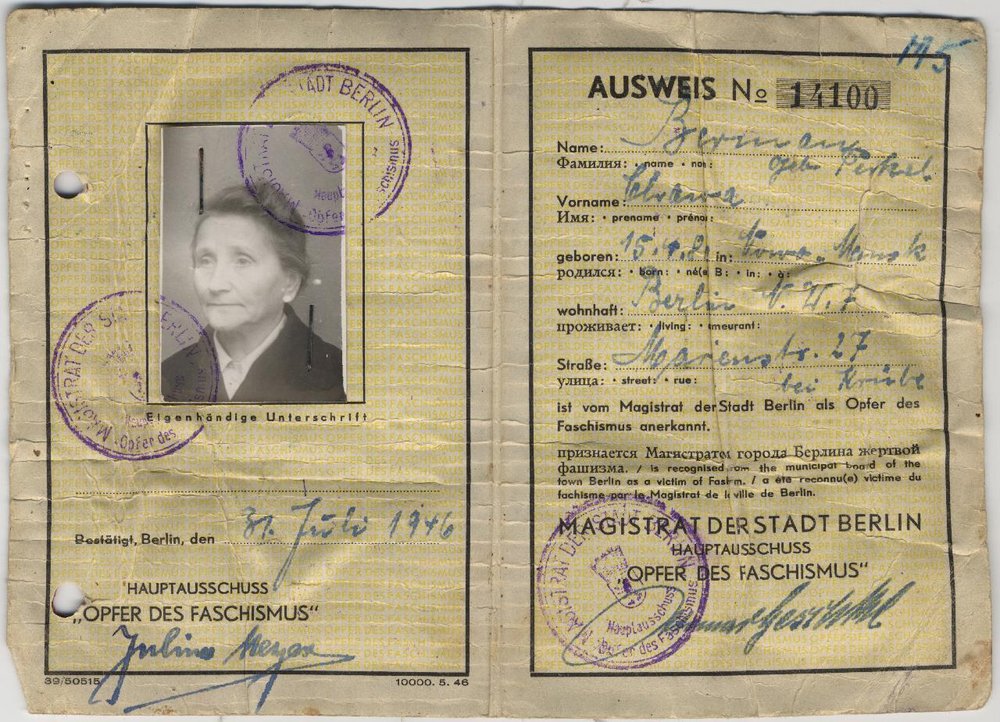 STADT BERLIN
Eigenhändige Unterschrift
Bestätigt, Berlin, den 31. Juli 1946
HAUPTAUSSCHUSS
„OPFER DES FASCHISMUS“
Julius Meyer
39/50515
10000. 5. 46
175
AUSWEIS No 14100
Name: Bermann
Фамилия: name • nom: geb.
Vorname: Chawa
Имя: • prename • prénom:
geboren: 15. in: Minsk
родился: • born: • né(e B: • in: • à:
wohnhaft: Berlin N.W.7
проживает: • living: •
Straße: Marienstr. 27
улица: • street: • rue: bei
ist vom Magistrat der Stadt Berlin als Opfer des
Faschismus anerkannt.
признается Магистратом города Берлина жертвой
фашизма. / is recognised from the municipal board of the
town Berlin as a victim of / a été reconnu(e) victime du
fachisme par le Magistrat de la ville de Berlin.
MAGISTRAT DER STADT BERLIN
HAUPTAUSSCHUSS
„OPFER DES FASCHISMUS“
MAGISTRAT DER STADT BERLIN
Hauptausschuss
Opfer des Faschismus